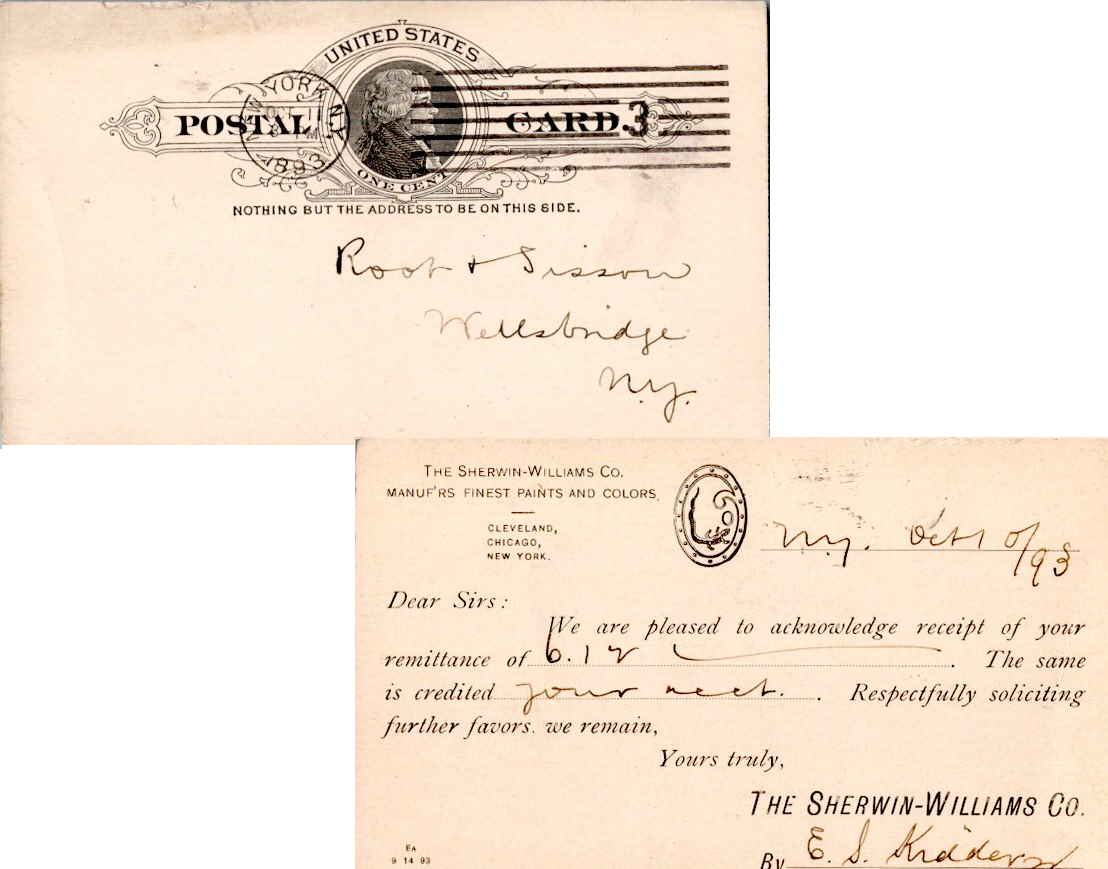 UNITED STATES
POSTAL CARD
3
NEW YORK N.Y.
1893
ONE CENT
NOTHING BUT THE ADDRESS TO BE ON THIS SIDE.
Root & Sisson
Wellsbridge
N.Y.
THE SHERWIN-WILLIAMS CO.
MANUF'RS FINEST PAINTS AND COLORS,
CLEVELAND,
CHICAGO,
NEW YORK.
N.Y. Oct 10/93
Dear Sirs:
We are pleased to acknowledge receipt of your
remittance of 6.12. The same
is credited your acct. Respectfully soliciting
further favors. we remain,
Yours truly,
THE SHERWIN-WILLIAMS CO.
By E. S. Kidder
EA
9 14 93